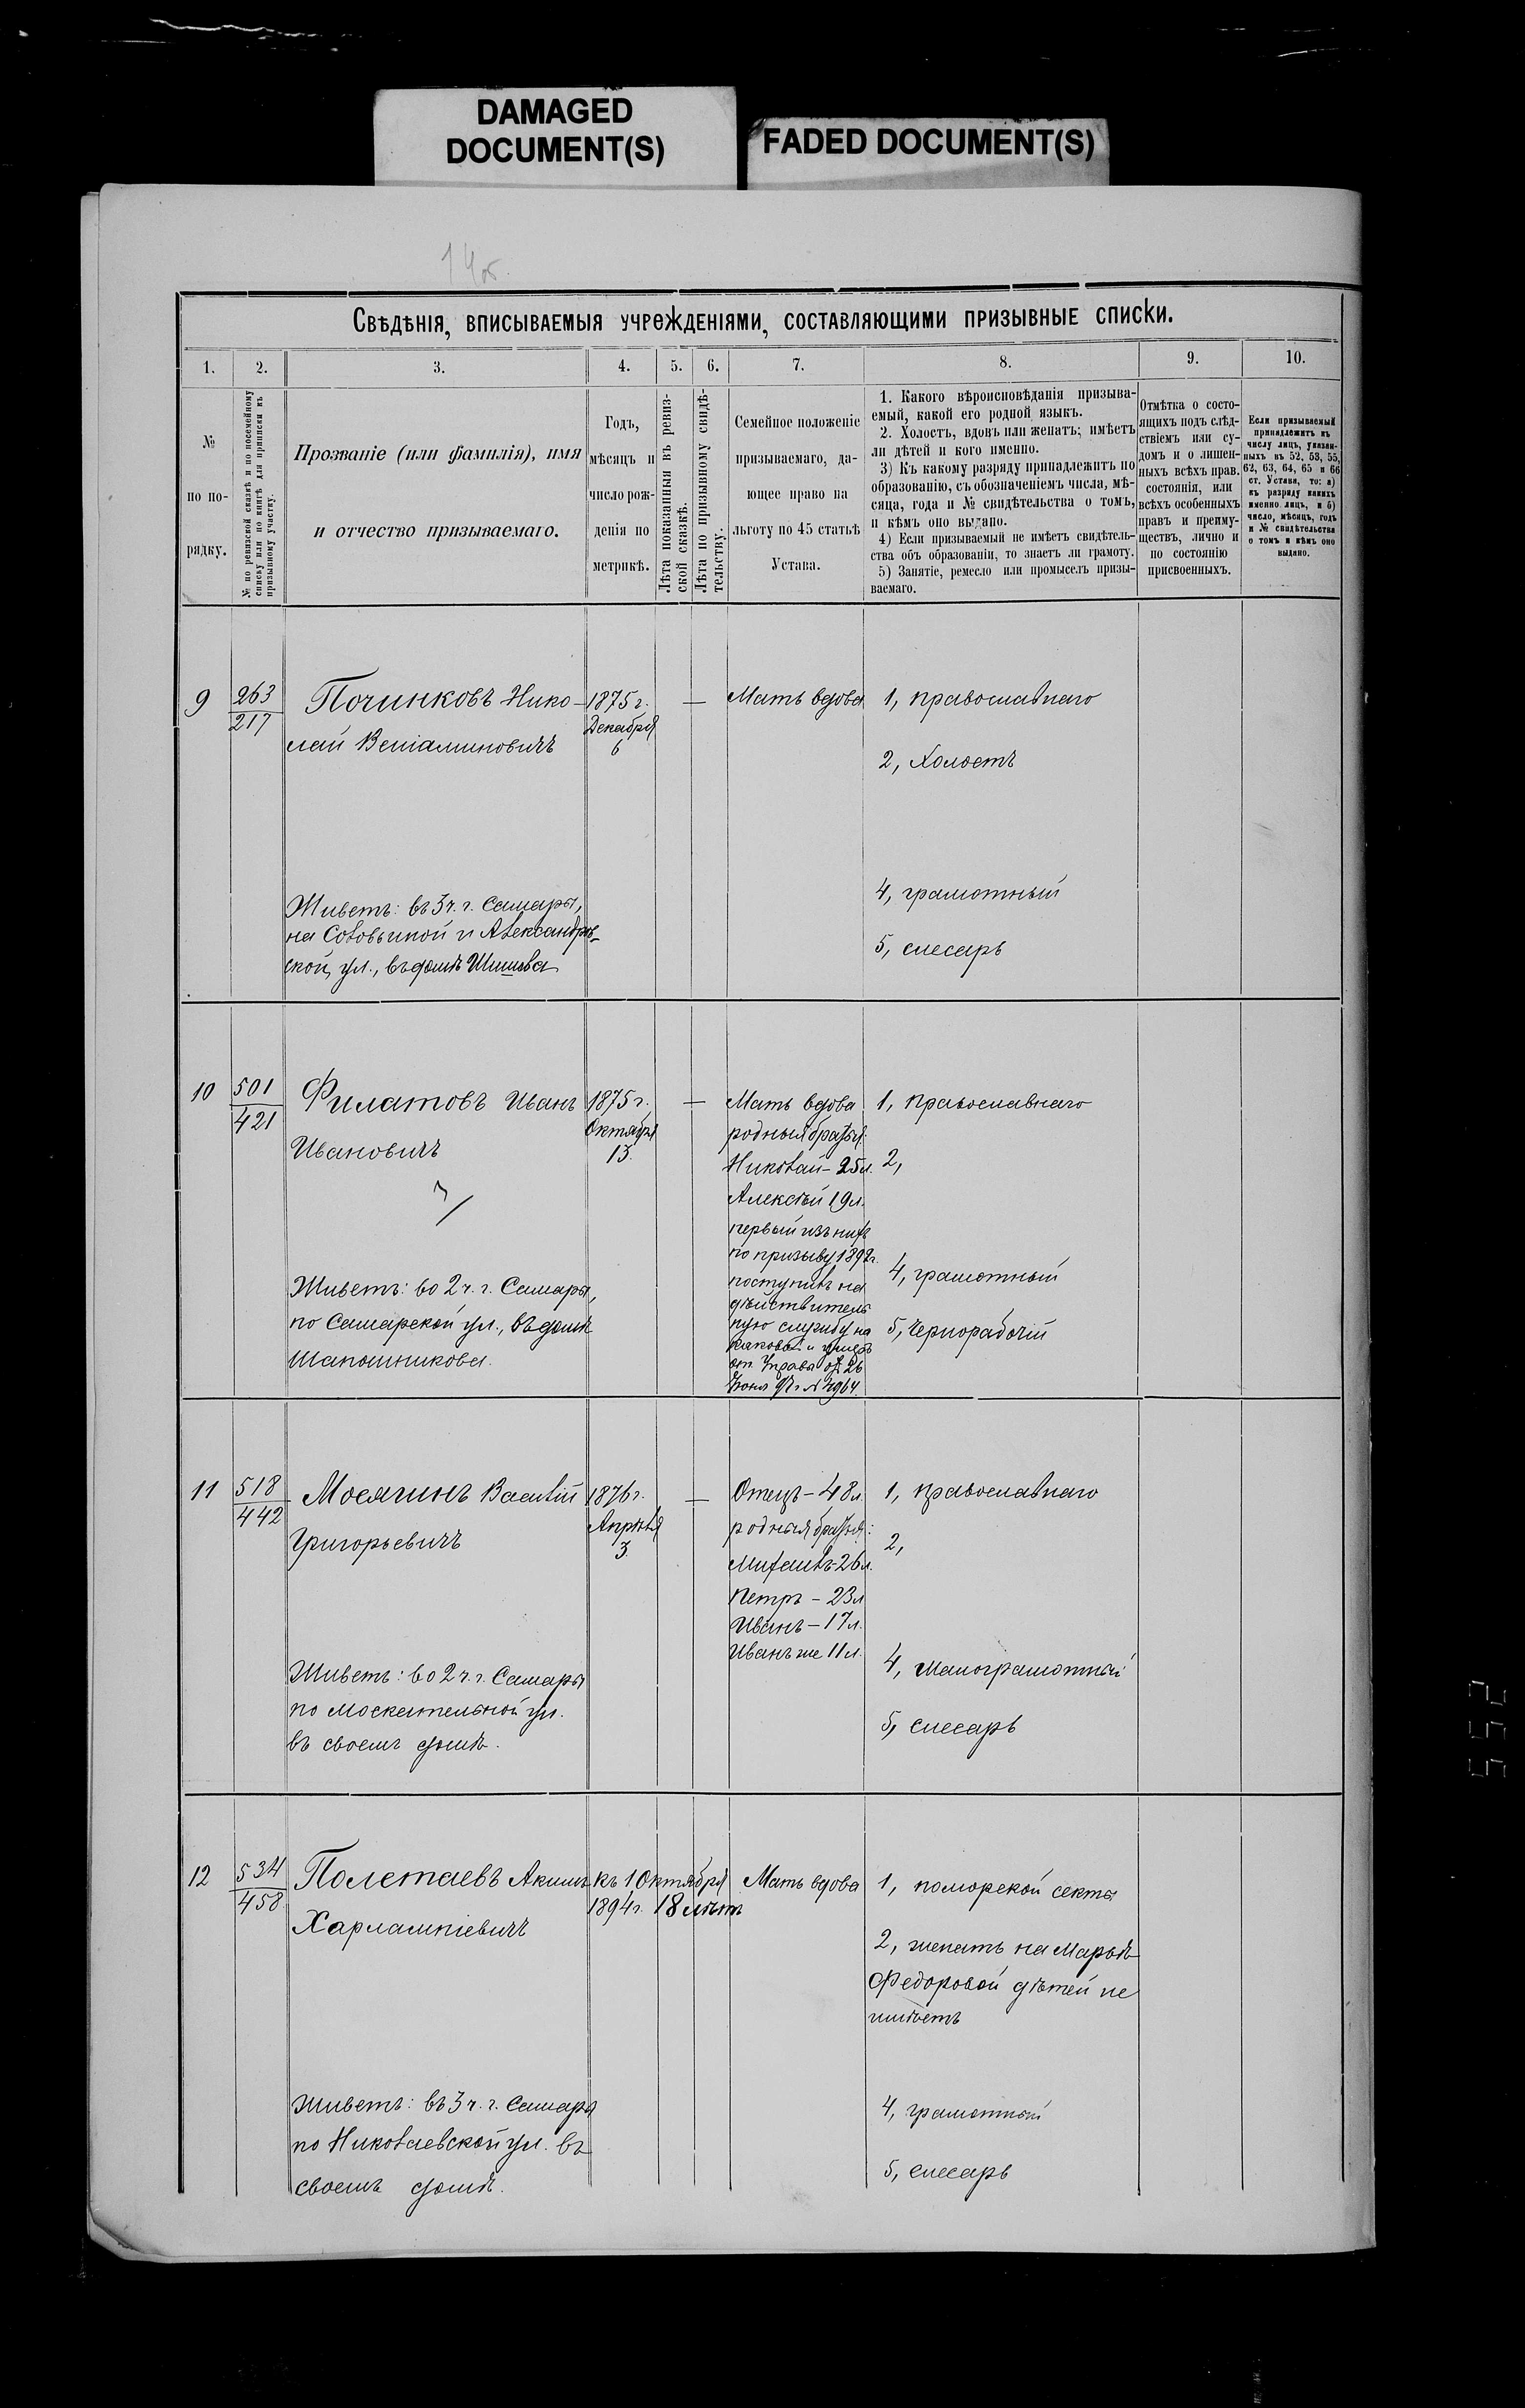 DAMAGED
DOCUMENT(S)
FADED DOCUMENT(S)
14об.
Свѣдѣнія, вписываемыя учрежденіями, составляющими призывные списки.
1. 2. 3. 4. 5. 6. 7. 8. 9. 10.
№
по по-
рядку.
№ по ревизской сказкѣ и по посемейному
списку или по книгѣ для приписки къ
призывному участку.
Прозваніе (или фамилія), имя
и отчество призываемаго.
Годъ,
мѣсяцъ и
число рож-
денія по
метрикѣ.
Лѣта показанныя въ ревиз-
ской сказкѣ.
Лѣта по призывному свидѣ-
тельству.
Семейное положеніе
призываемаго, да-
ющее право на
льготу по 45 статьѣ
Устава.
1. Какого вѣроисповѣданія призыва-
емый, какой его родной языкъ.
2. Холостъ, вдовъ или женатъ; имѣетъ
ли дѣтей и кого именно.
3) Къ какому разряду принадлежитъ по
образованію, съ обозначеніемъ числа, мѣ-
сяца, года и № свидѣтельства о томъ,
и кѣмъ оно выдано.
4) Если призываемый не имѣетъ свидѣтель-
ства объ образованіи, то знаетъ ли грамоту.
5) Занятіе, ремесло или промыселъ призы-
ваемаго.
Отмѣтка о состо-
ящихъ подъ слѣд-
ствіемъ или су-
домъ и о лишен-
ныхъ всѣхъ прав.
состоянія, или
всѣхъ особенныхъ
правъ и преиму-
ществъ, лично и
по состоянію
присвоенныхъ.
Если призываемый
принадлежитъ къ
числу лицъ, указан-
ныхъ въ 52, 53, 55,
62, 63, 64, 65 и 66
ст. Устава, то: а)
къ разряду какихъ
именно лицъ, и б)
число, мѣсяцъ, годъ
и № свидѣтельства
о томъ и кѣмъ оно
выдано.
9
263
217
Починковъ Нико-
лай Веніаминовичъ
Живетъ: въ 3 ч. г. Самары,
на Соловьиной и Александров-
ской ул., въ домѣ Шишова
1875 г.
Декабря
6
—
Мать вдова
1, православнаго
2, Холостъ
4, грамотный
5, слесарь
10
501
421
Филатовъ Иванъ
Ивановичъ
Живетъ: во 2 ч. г. Самары,
по Самарской ул., въ домѣ
Шапошникова.
1875 г.
Октября
13.
—
Мать вдова
родныя братья:
Николай – 25 л.
Алексѣй 19 л.
первый изъ нихъ
по призыву 1892 г.
поступилъ на
дѣйствитель
ную службу на
каковой и умеръ
от. Управы от 26
Іюня 97 г. № 4964.
1, православнаго
2,
4, грамотный
5, Чернорабочій
11
518
442
Мосягинъ Василій
Григорьевичъ
Живетъ: во 2 ч. г. Самары
по Москательной ул.
въ своемъ домѣ.
1876 г.
Апрѣля
3.
—
Отецъ – 48 л.
родныя братья:
Михаилъ – 26 л.
Петръ – 23 л
Иванъ – 17 л.
Иванъ же 11 л.
1, православнаго
2,
4, малограмотный
5, слесарь
12
534
458
Полетаевъ Акимъ
Харлампіевичъ
живетъ: въ 3 ч. г. Самары
по Николаевской ул. въ
своемъ домѣ.
къ 1 Октября
1894 г. 18 лѣтъ
Мать вдова
1, поморской секты
2, женатъ на Марьѣ
Федоровой дѣтей не
имѣетъ
4, грамотный
5, слесарь
552